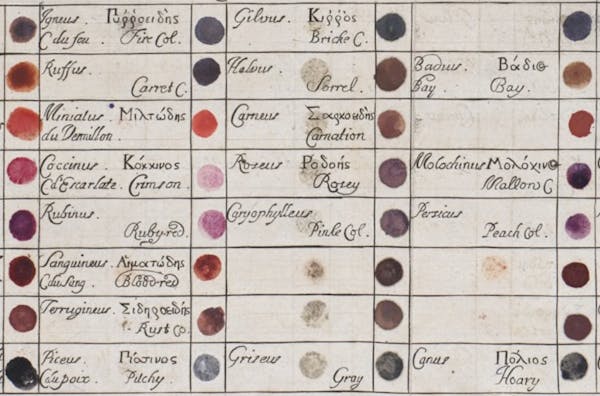 Igneus. Πυῤῥοειδὴς
C du feu. Fire Col.
Gilvus. Κιῤῥὸς
Bricke C.
Ruffus.
Carret C.
Helvus.
Sorrel.
Badius. Βάδιος
Bay. Bay.
Miniatus. Μιλτώδης
du Vermillon.
Carneus. Σαρκοειδὴς
Carnation
Coccinus. Κόκκινος
C d'Escarlate. Crimson.
Roseus Ροδοής
Rosey
Molochinus Μολόχινος
Mallow C
Rubinus.
Ruby-red.
Caryophylleus
Pinke Col.
Persicus
Peach Col.
Sanguineus. Αιματώδης
C du Sang. Blood-red
Ferrugineus. Σιδηροειδὴς
Rust Co.
Piceus. Πίσσινος
C du poix. Pitchy.
Griseus
Gray
Canus Πόλιος
Hoary